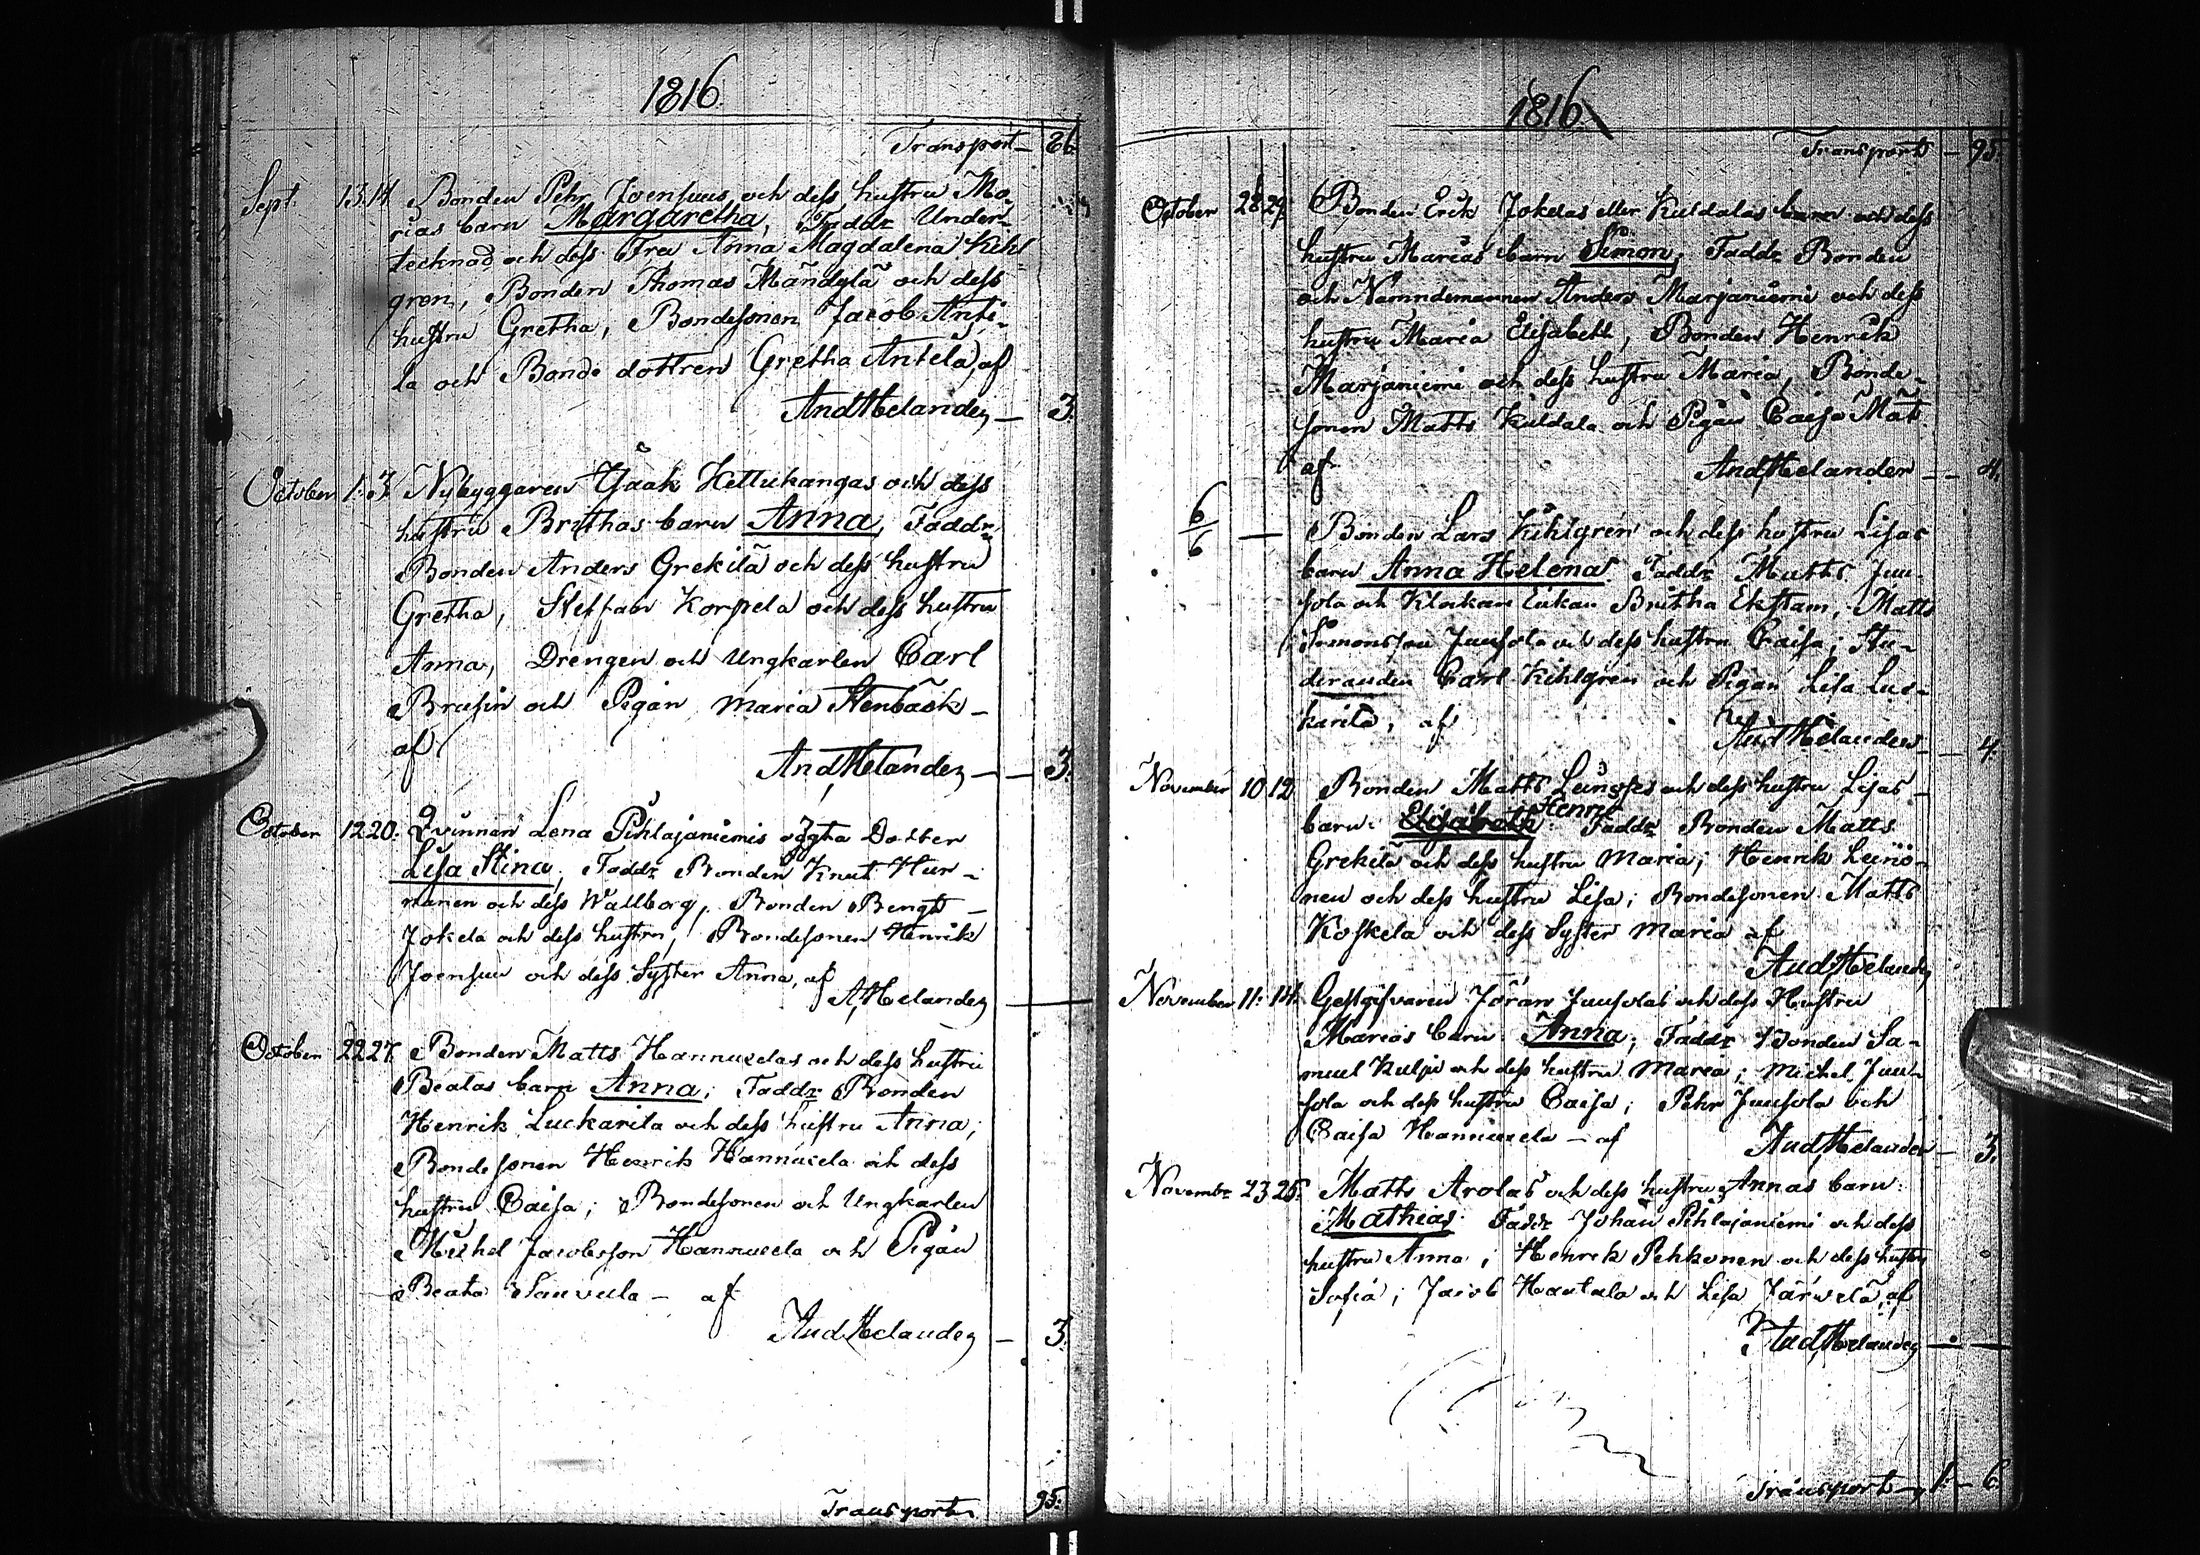 1816.
Transport — 86
Sept. 13. 14. Bonden Pehr Joensuus och dess hustru Ma-
rias barn Margaretha, Faddr Under-
tecknad och dess Fru Anna Magdalena Kihl
gren, Bonden Thomas Mändylä och dess
hustru Gretha, Bondesonen Jacob Anti-
la och Bonde dottren Gretha Antila, af
And Helander — 3.
October 1. 3. Nybyggaren Isaak Kettukangas och dess
hustru Brithas barn Anna, Faddr
Bonden Anders Grekilä och dess hustru
Gretha, Steffan Korpela och dess hustru
Anna, Drengen och Ungkarlen Carl
Brusin och Pigan Maria Stenbäck —
af
And Helander — 3.
October 12 20. Qvinnan Lena Pihlajaniemis oägta Dotter
Lisa Stina, Faddr Bonden Knut Hur-
nanen och dess Wallborg, Bonden Bengt
Jokela och dess hustru, Bondesonen Henrik
Joensuu och dess Syster Anna, af
A, Helander —
October 22 27. Bonden Matts Hannuxelas och dess hustru
Beatas barn Anna; Faddr Bonden
Henrik Luckarila och dess hustru Anna;
Bondesonen Henrik Hannuxela och dess
hustru Caisa; Bondesonen och Ungkarlen
Michel Jacobsson Hannuxela och Pigan
Beata Sauvula — af
And Helander — 3.
Transport 95.
1816.
Transport — 95.
October 28 29. Bonden Erik Jokelas eller Kuldalas barn och dess
hustru Marias barn Simon, Faddr Bonden
och Nämndemannen Anders Marjaniemi och dess
hustru Maria Elisabeth, Bonden Henrik
Marjaniemi och dess hustru Maria, Bonde-
sonen Matts Kuldala och Pigan Caisa Mats
af And Helander — 4.
6/6 — Bonden Lars Kihlgren och dess hustru Lisas
barn Anna Helena Faddr Matts Juu-
sola och Klockare Enkan Britha Ekstam, Matts
Simonsson Juusola och dess hustru Caisa; Stu-
deranden Carl Kihlgren och Pigan Lisa Luc-
karila, af And Helander — 4.
November 10 12. Bonden Matts Leinoses och dess hustru Lisas
barn Elisabeth Henric Faddr Bonden Matts
Grekilä och dess hustru Maria; Henrik Leino-
nen och dess hustru Lisa; Bondesonen Matts
Koskela och dess Syster Maria af
And Helander
November 11. 14. Gestgifvaren Jöran Juusolas och dess Hustru
Marias barn Anna; Faddr Bonden Sa-
muel Kulju och dess hustru Maria; Michel Juu-
sola och dess hustru Caisa; Pehr Juusola och
Caisa Hannuxela — af And Helander — 3.
Novembr. 23 25. Matts Arolas och dess hustru Annas barn
Mathias Faddr Johan Pihlajaniemi och dess
hustru Anna; Henrik Pehkonen och dess hustru
Sofia; Jacob Hautala och Lisa Järvelä, af
And Helander —
Transport 1. — 6.